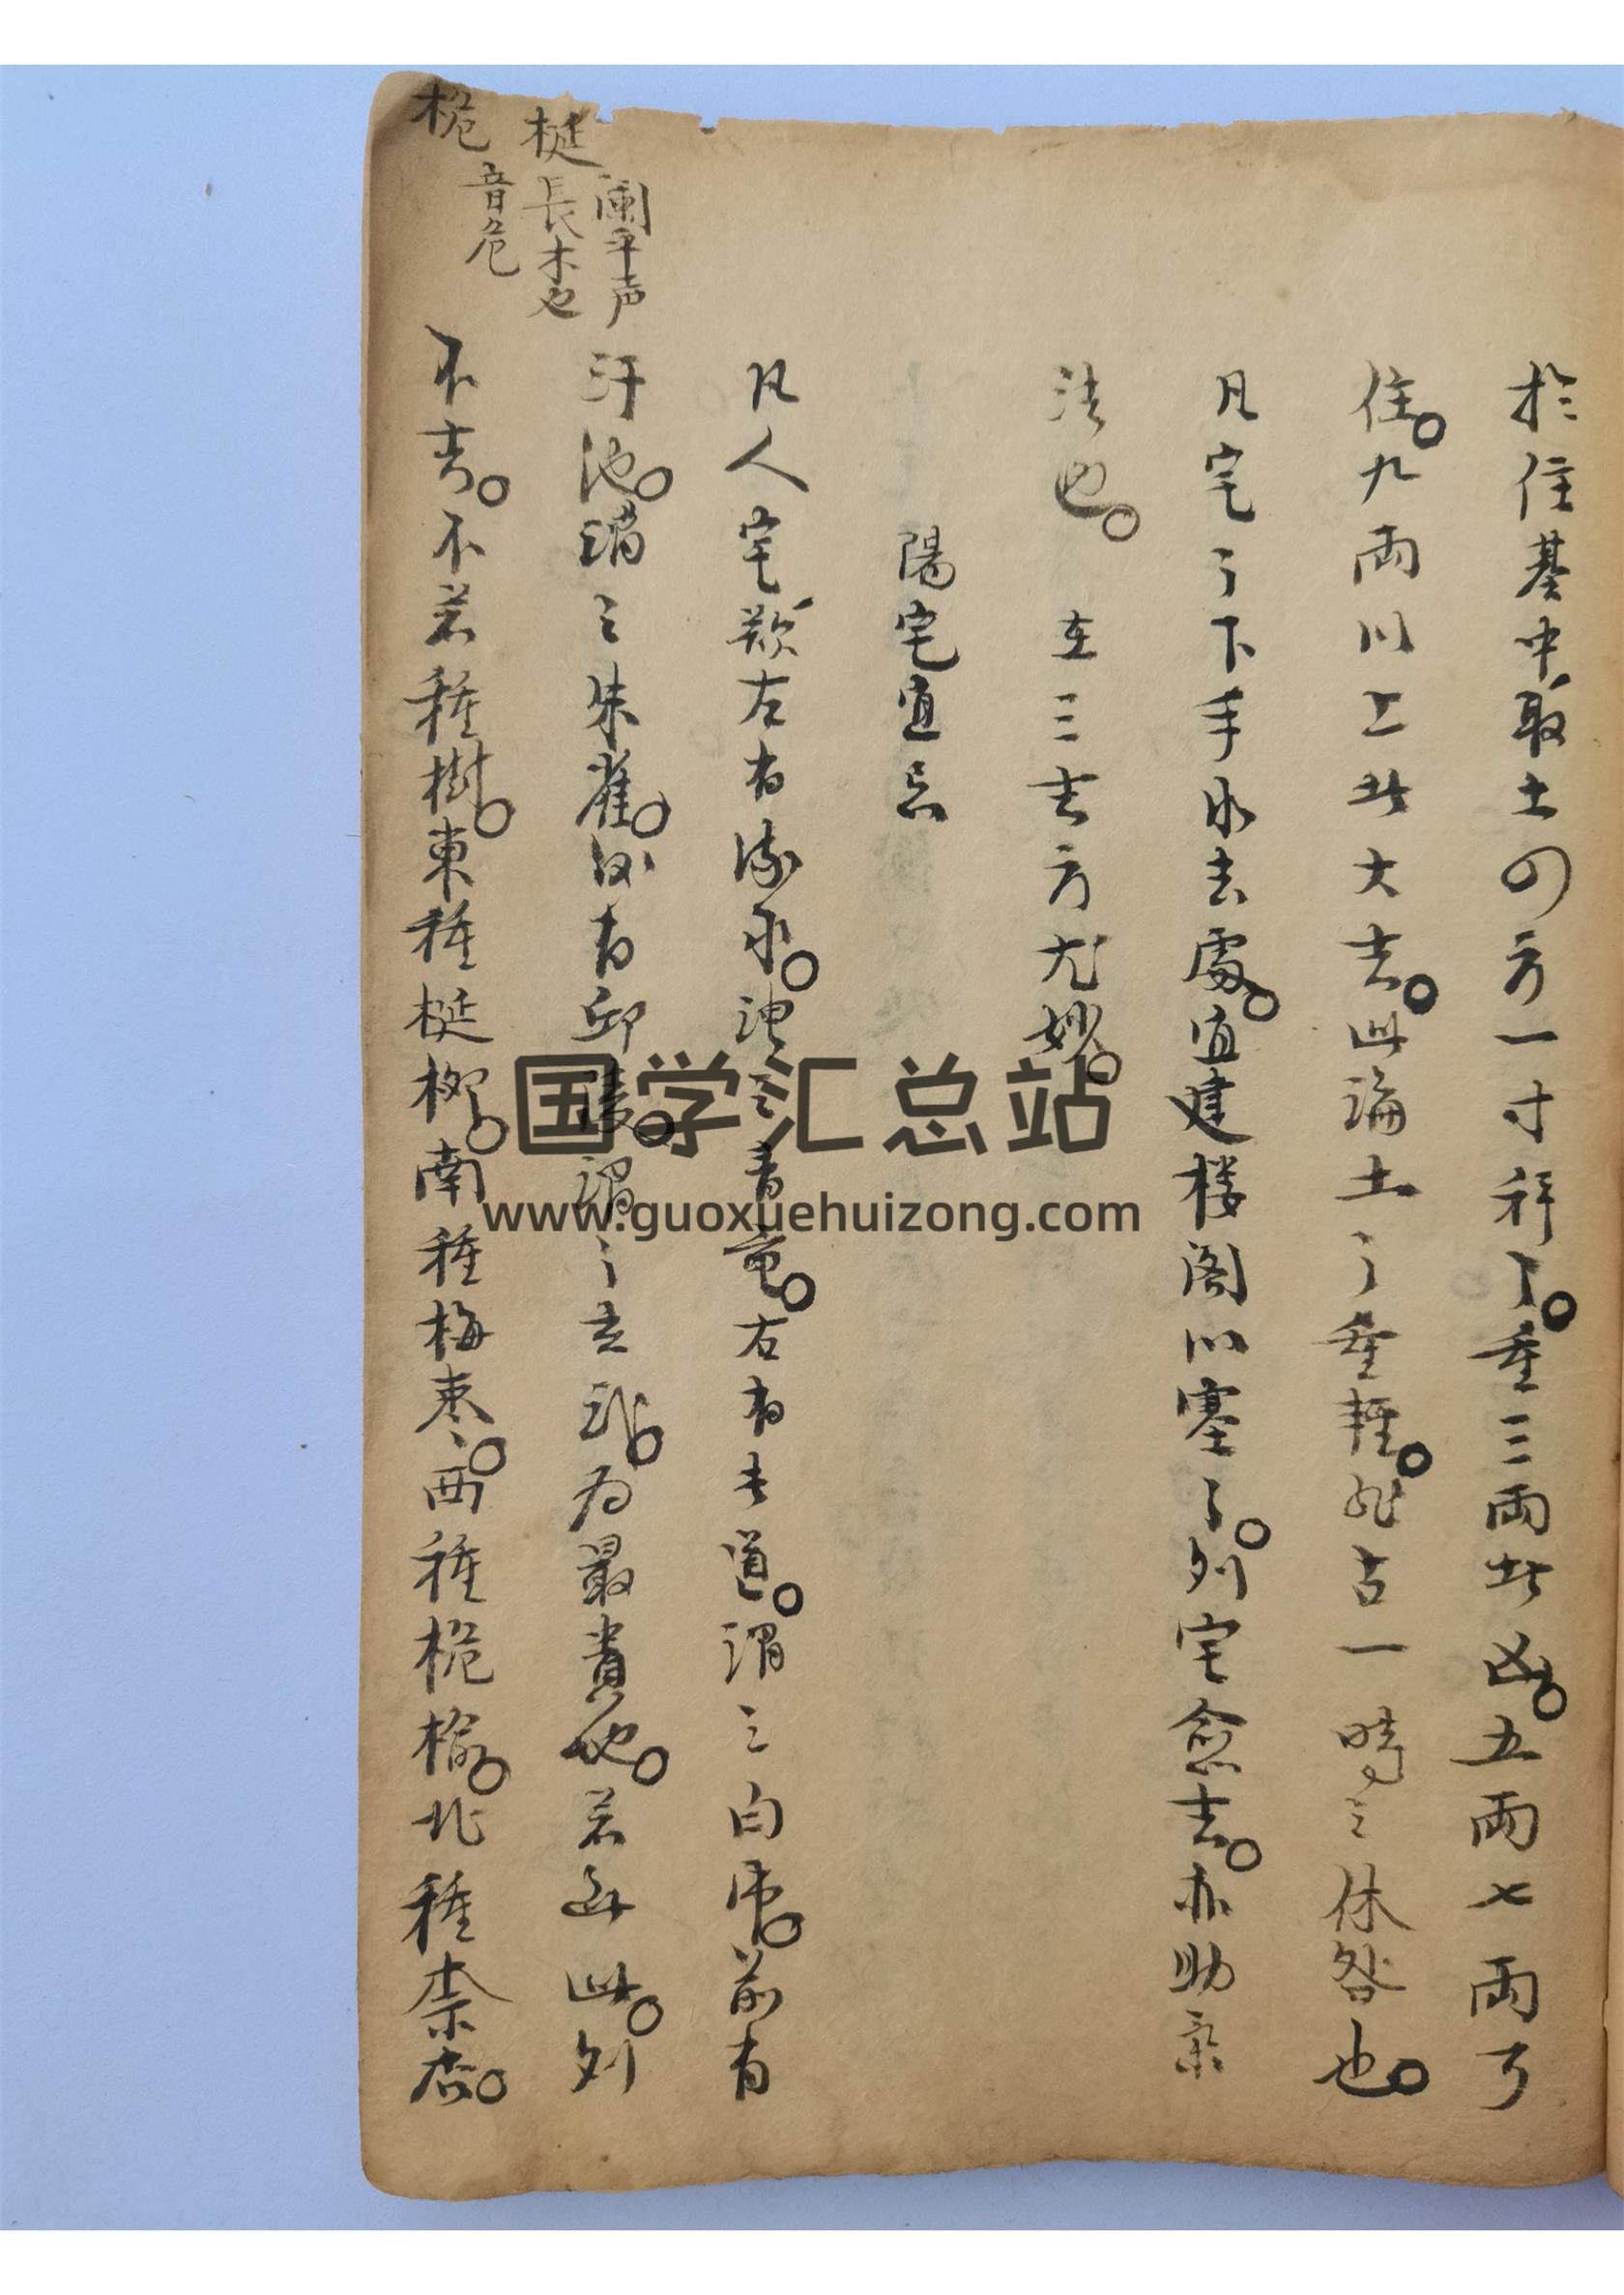 於住基中取土四方一寸秤之。重三兩者凶。五兩七兩可
住。九兩以上者大吉。此論土之重輕。非占一時之休咎也。
凡宅之下手水去處。宜建楼阁以塞之。則宅愈吉。亦助氣
法也。在三吉方尤妙。
陽宅宜忌
凡人宅欲左有流水。謂之青竜。右有長道。謂之白虎。前有
汙池。謂之朱雀。後有邱陵。謂之玄武。为最貴地。若無此。則
不吉。不若種樹。東種梃柳。南種梅枣。西種桅榆。北種柰杏。
闽平声
梃 長木也
桅 音危
国学汇总站
www.guoxuehuizong.com